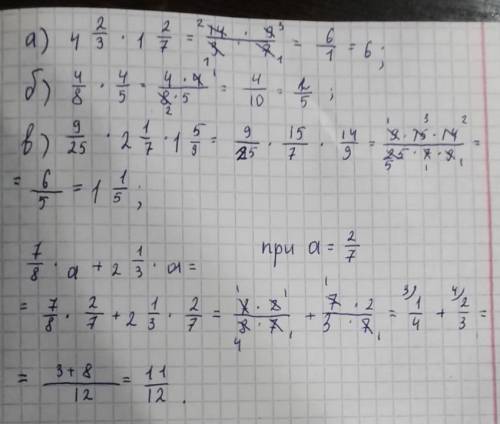 а) 4 2/3 · 1 2/7 = 14 · 9 / 3 · 7 = 6/1 = 6;
б) 4/8 · 4/5 = 4 · 4 / 8 · 5 = 4/10 = 2/5;
в) 9/25 · 2 1/7 · 1 5/9 = 9/25 · 15/7 · 14/9 = 9 · 15 · 14 / 25 · 7 · 9 =
= 6/5 = 1 1/5;
7/8 · a + 2 1/3 · a = при a = 2/7
= 7/8 · 2/7 + 2 1/3 · 2/7 = 7 · 2 / 8 · 7 + 7 · 2 / 3 · 7 = 1/4 + 2/3 =
= 3 + 8 / 12 = 11/12.